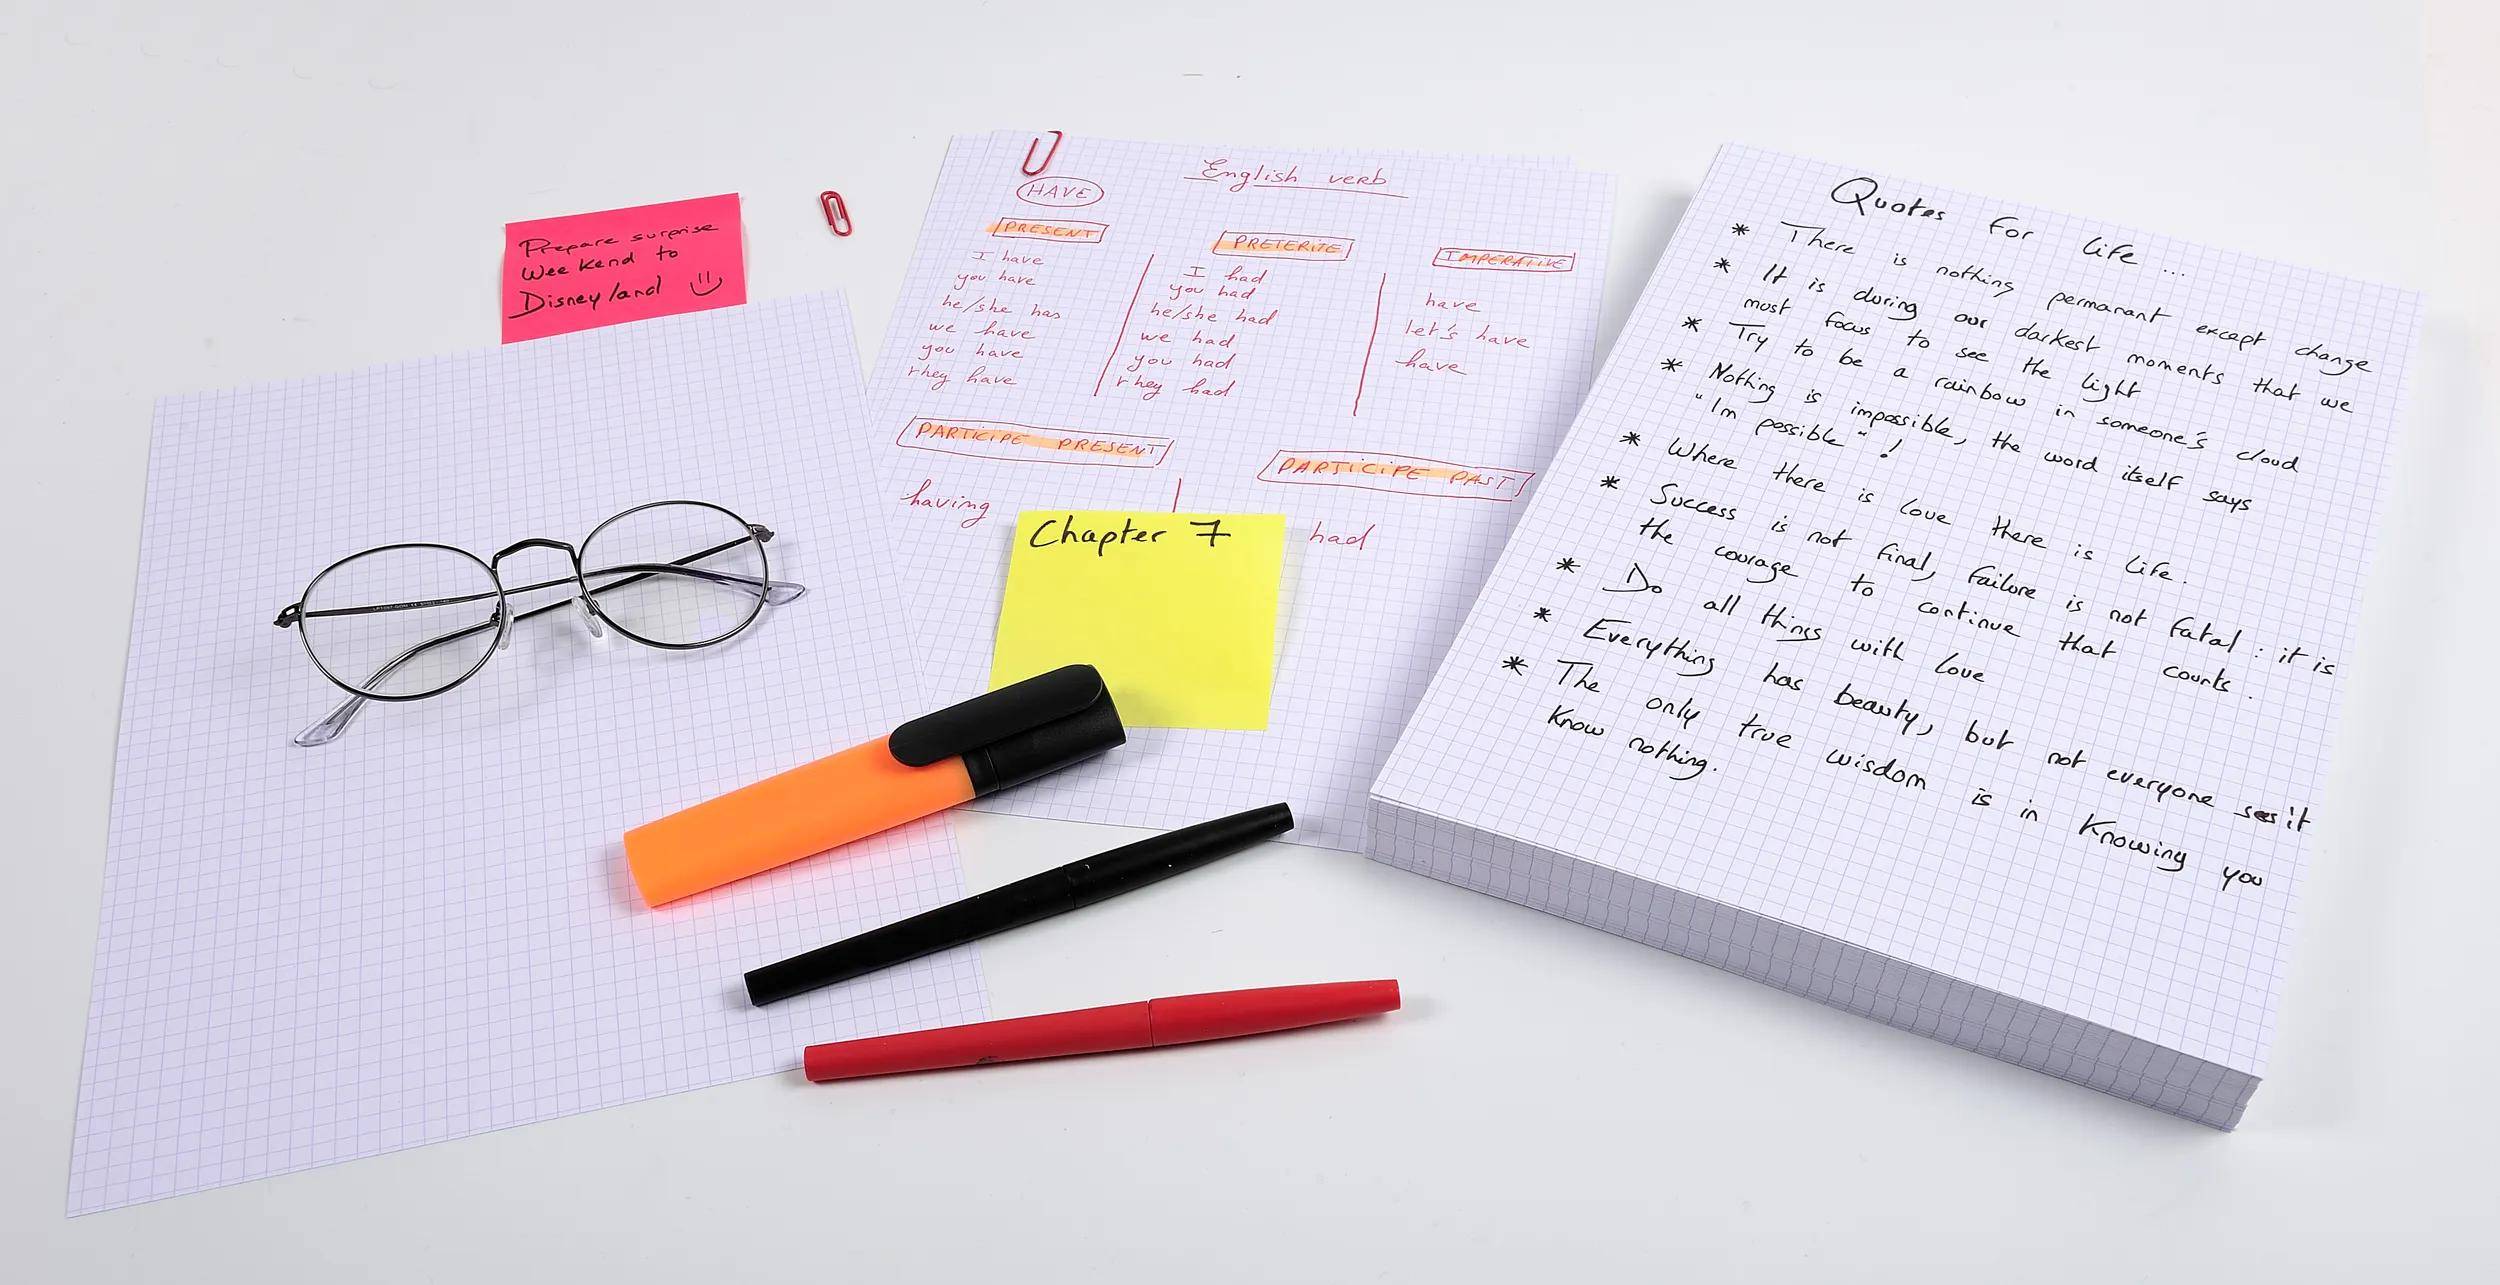 Prepare surprise
Weekend to
Disneyland
English verb
HAVE
PRESENT
I have
you have
he/she has
we have
you have
they have
PRETERITE
I had
you had
he/she had
we had
you had
they had
IMPERATIVE
have
let's have
have
PARTICIPE PRESENT
having
PARTICIPE PAST
had
Chapter 7
Quotes for life ...
* There is nothing permanant except change
* It is during our darkest moments that we
most focus to see the light
* Try to be a rainbow in someone's cloud
* Nothing is impossible, the word itself says
"Im possible" !
* Where there is love there is life.
* Success is not final, failure is not fatal : it is
the courage to continue that counts.
* Do all things with love
* Everything has beauty, but not everyone sees it
* The only true wisdom is in knowing you
know nothing.